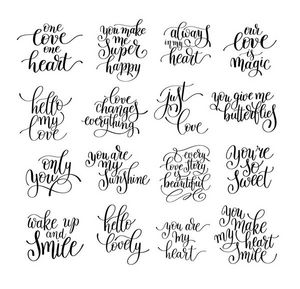 one
love
one
heart
you make
me
Super
happy
always
in my
heart
our
love
is
magic
hello
my
love
love
changes
everything
just
love
you give me
butterflies
only
you
you are
my
Sunshine
every
love story
is
beautiful
you're
so
sweet
wake up
and
Smile
hello
lovely
you are
my
heart
you
make
my heart
Smile